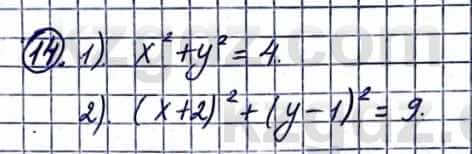 14. 1). x² + y² = 4.
2). (x+2)² + (y-1)² = 9.